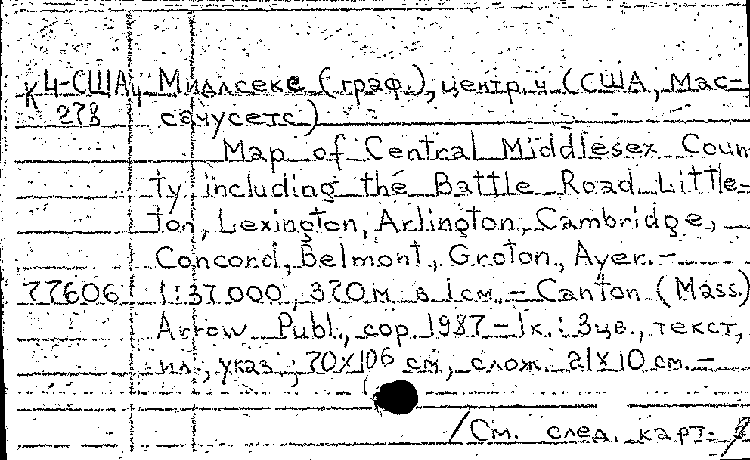 К Ц-США, Мидлсекс (граф.), центр. ч (США, Мас-
278 сачусетс)
Map of Central Middlesex Coun-
ty including the Battle Road Little-
ton, Lexington, Arlington, Cambridge,
Concord, Belmont, Groton, Ayer.-
77606 1:37.000, 370м в 1см. - Canton (Mass.)
Arrow Publ., cop 1987 - 1к.: 3цв., текст,
ил., указ.; 70x106 см, слож. 21x10 см. -
/См. след. карт.